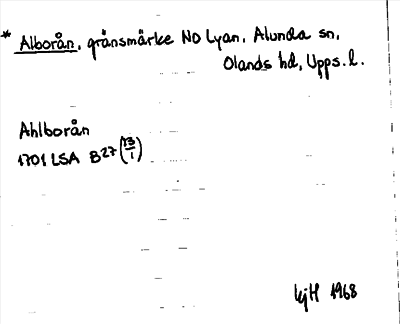 * Alborån, gränsmärke NO Lyan, Alunda sn,
Olands hd, Upps. l.
Ahlborån
1701 LSA B27 (13/1)
kjH 1968